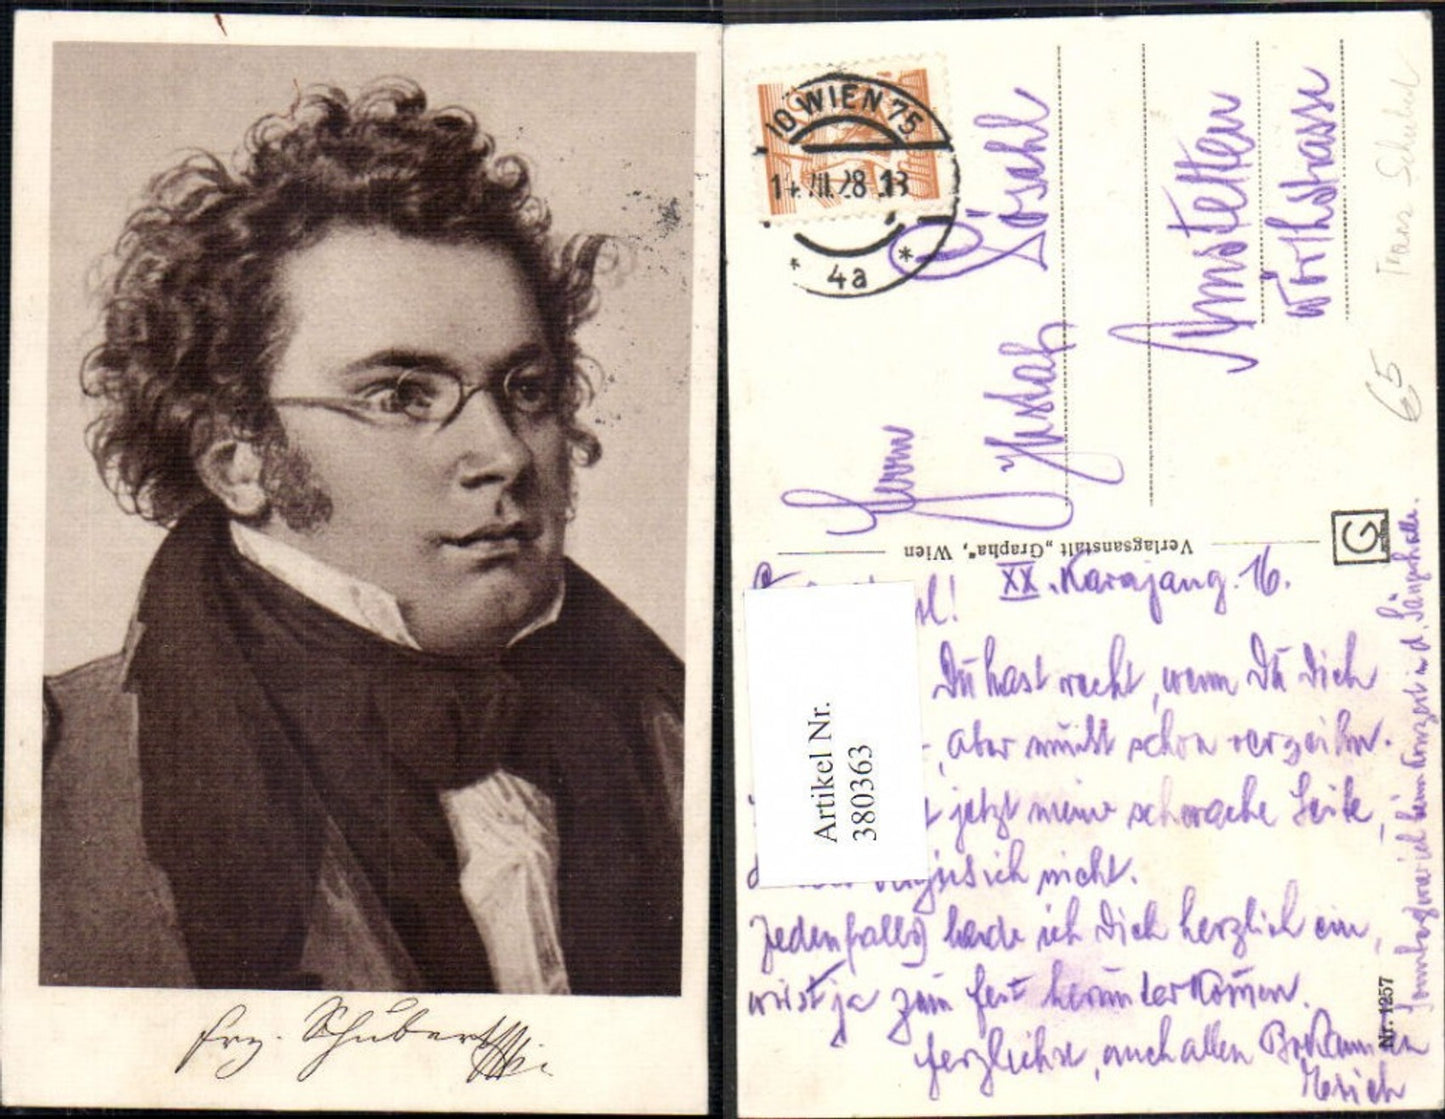 Frz. Schubert
10 WIEN 75
VII.28
* 4a *
Herrn
Gustav Löschl
Amstetten
Wörthstrasse
Franz Schubert
65
Verlagsanstalt „Grapha“, Wien
G
XX. Karajang. 16.
Du hast recht, wenn Du Dich
, aber mußt schon verzeihn.
jetzt meine schwache Seite,
sich nicht.
Jedenfalls lade ich Dich herzlich ein,
wirst ja zum Fest herunterkommen.
Herzlichst, auch allen Bekannten
Sonntag war ich beim Konzert in d. Sängerhalle.
Nr. 1257
Artikel Nr.
380363